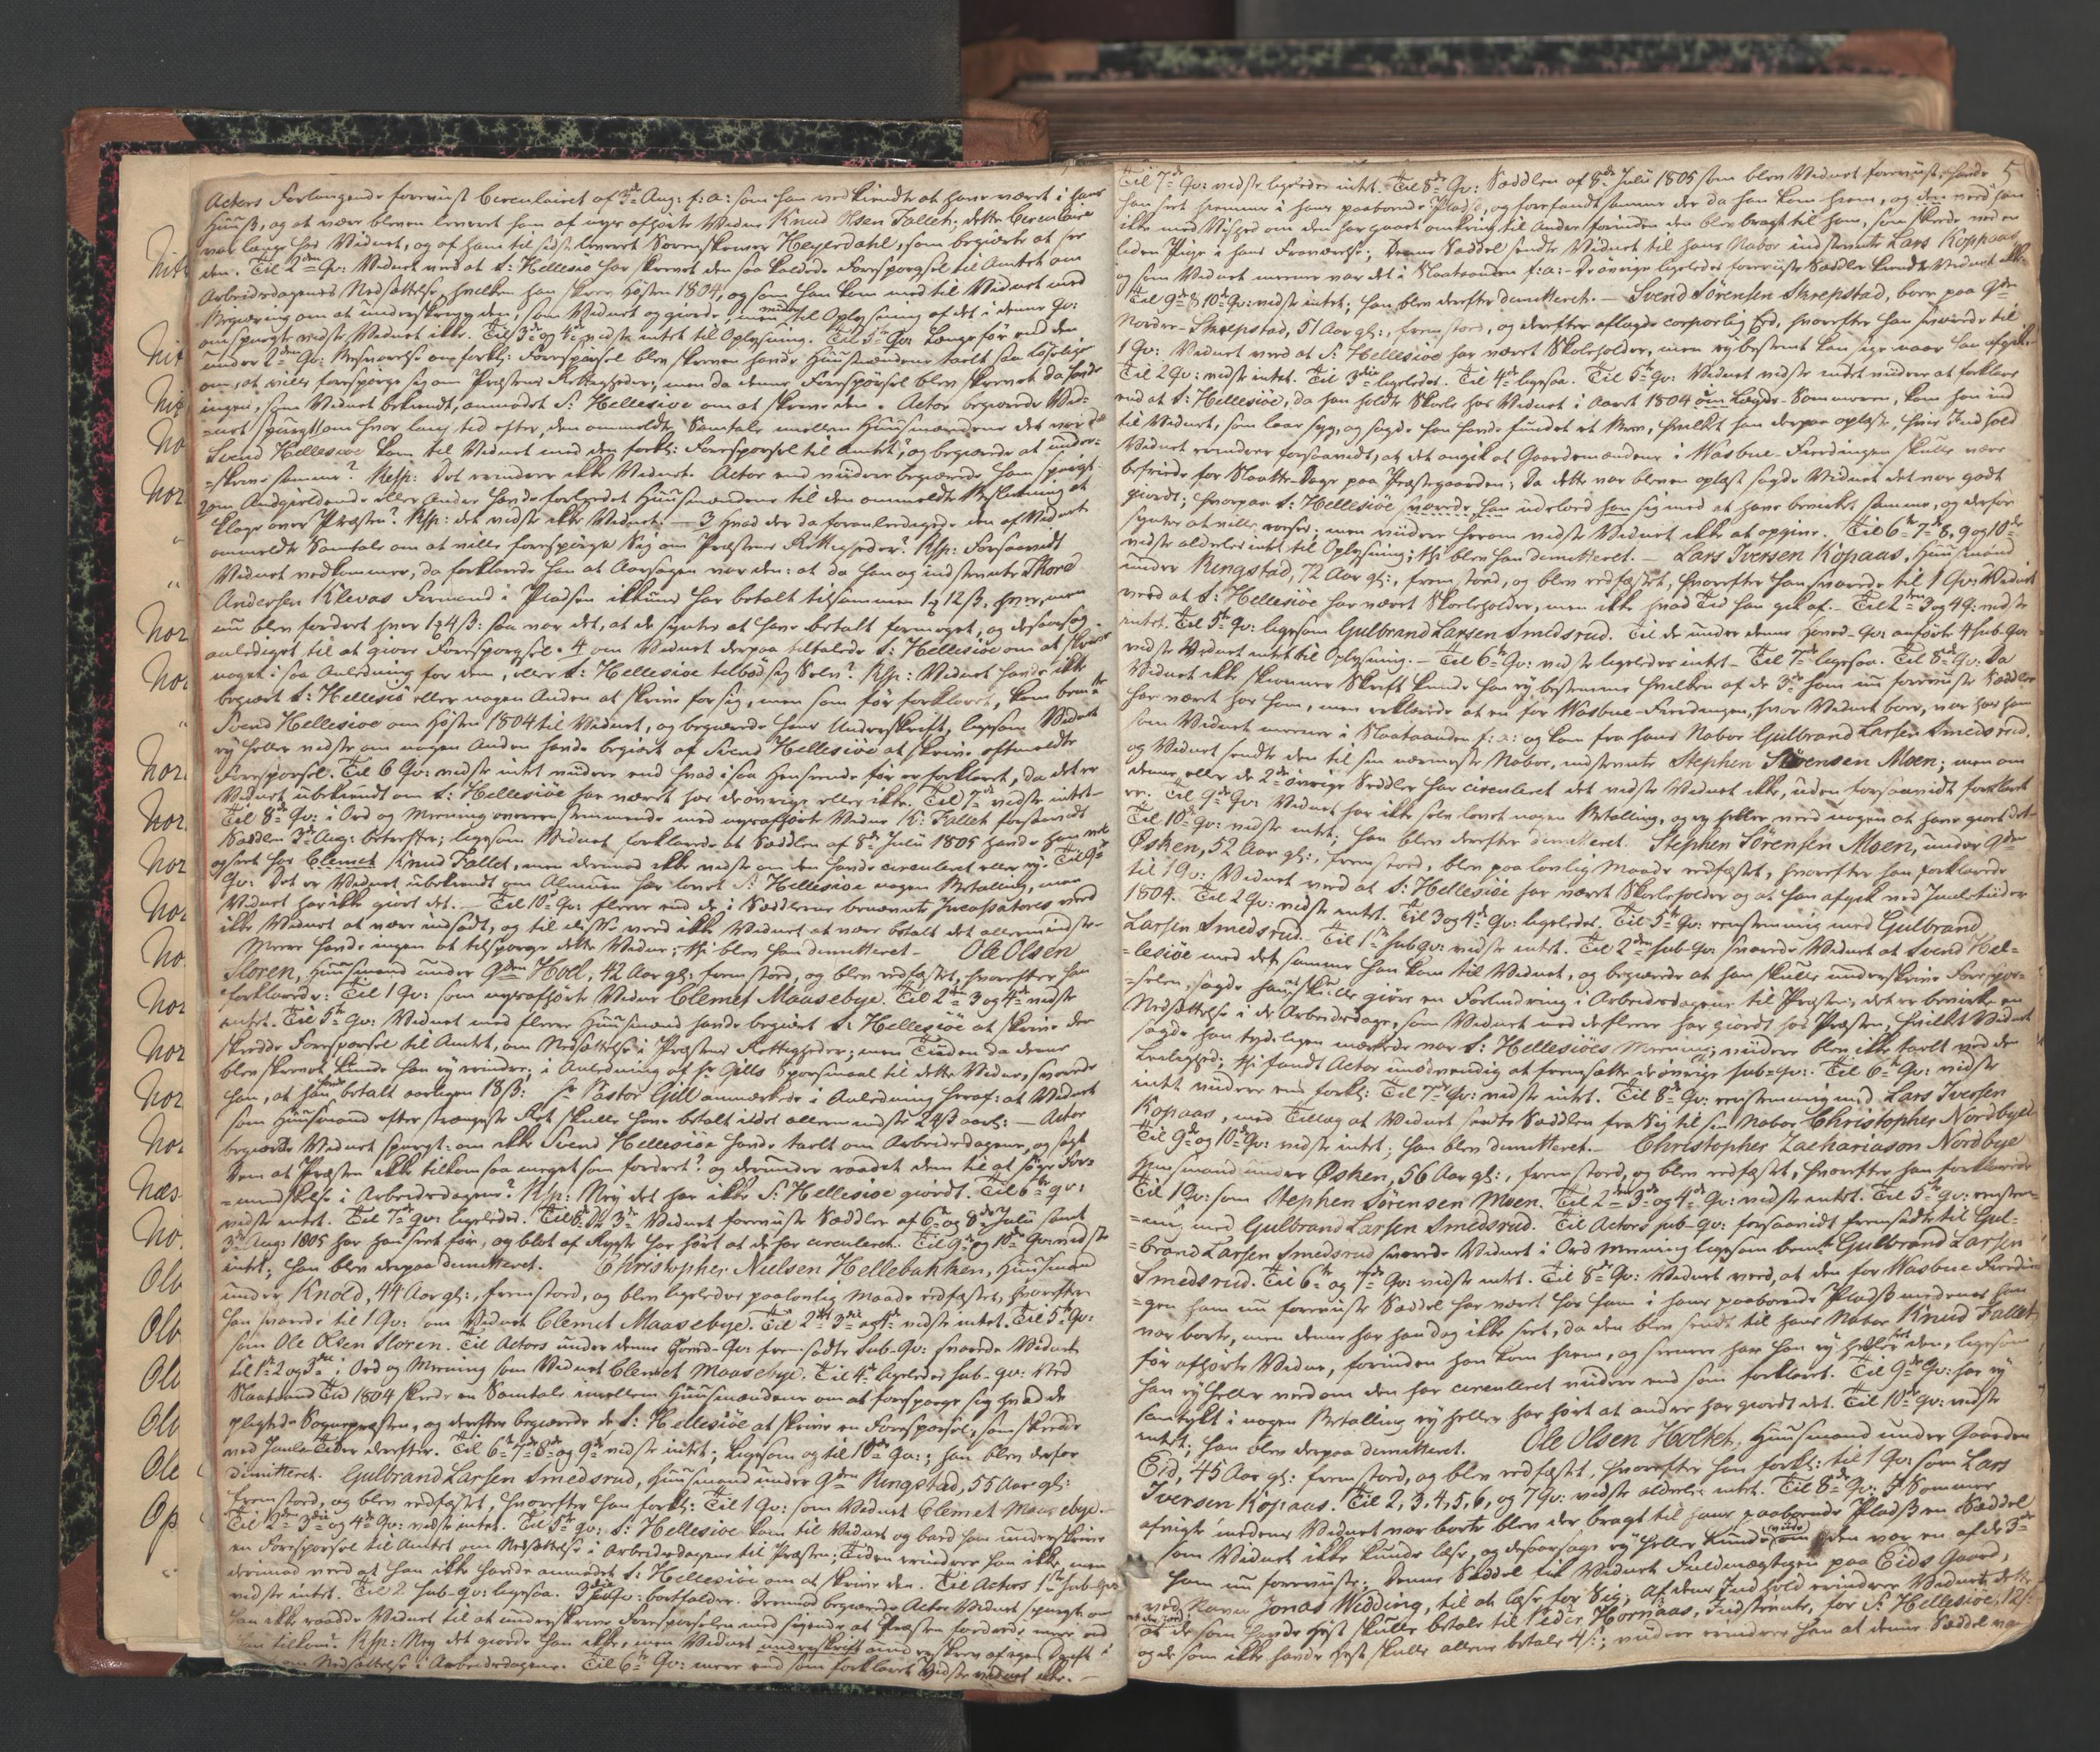 Actors Forlangende foreviist Circulairet af 3de Aug: f: a: som han vedkiendte at have været i hans
Huus, og at være bleven leveret ham af nys afhörte Vidne Knud Olsen Fallet; dette Circulaire
var længe hos Vidnet, og af ham til sidst leveret Sorenskriver Heyerdahl, som begierte at see
den. Til 2den Qv: Vidnet veed at S: Hellesiö har skrevet den saa kaldede Forespørgsel til Amtet om
Arbeidsdagenes Nedsættelse, hvilken han skrev Høsten 1804, og som han kom med til Vidnet med
Begiering om at underskrive den, som Vidnet og giorde; men til Oplysning af det i denne Qv:
omspurgte vidste Vidnet ikke. Til 3de og 4de vidste intet til Oplysning. Til 5te Qv: Længe før end den
under 2den Qv: forkl: Forespørsel blev skreven havde Huusmændene talt saa løselig
om, at ville forespørge sig om Præstens Rettigheder; men da denne Forespørsel blev skrevet da havde
ingen, som Vidnet bekiendt, anmodet S: Hellesiøe om at skrive den. Actor begierede Vid=
=net spurgt om hvor lang tid efter, den ommeldte Samtale imellem Huusmændene det var
Svend Hellesiöe kom til Vidnet med den forkl: Forespørsel til Amtet, og begierede at under=
=skrive samme? Resp: Det erindrer ikke Vidnet. Actor end videre begierede ham spurgt:
2 om Andgieldende eller Andre havde forledet Huusmændene til den ommeldte Beslutning at
klage over Præsten? Rsp: det vidste ikke Vidnet. — 3 hvad der da foranledigede den af Vidnet
ommeldte Samtale om at ville forespörge sig om Præstens Rettigheder? Rsp: Forsaavidt
Vidnet vedkommer, da forklarede han at Aarsagen var den: at da han og indstevnte Thord
Andersen Klevas Formand i Pladsen ikkun har betalt tilsammen 1 12ß, hver, men
nu blev fordret hver 1 4ß: saa var det, at de syntes at have betalt formeget, og desaarsag
anlediget til at giøre Forespørgsel. 4 om Vidnet derpaa tiltalede S: Hellesiöe om at skrive
noget i saa Anledning for dem, eller S: Hellesiöe tilbød sig Selv? Rsp: Vidnet havde ikke
begiert S: Hellesiö eller nogen Anden at skrive for sig, men som før forklaret, kom bemte
Svend Hellesiöe om Høsten 1804 til Vidnet, og begierede hans Underskrift, ligesom Vidnet
ey heller vidste om nogen Anden havde begiert af Svend Hellesiöe at skrive oftmeldte
Forespørsel. Til 6 Qv: vidste intet videre end hvad i saa Henseende før er forklaret, da det er
Vidnet ubekiendt om S: Hellesiöe har været hos de øvrige eller ikke. Til 7de vidste intet.
Til 8de Qv: i Ord og Meening overeensstemmende med nysafhörte Vidne K: Fallet forsaavidt
Sædlen 3de Aug: betreffer; ligesom Vidnet forklarede at Sædlen af 8de Julii 1805 havde han vel
og seet hos Clemet Knud Fallet, men derimod ikke vidste om den havde circuleret eller ej. Til 9de
Qv: Det er Vidnet ubekiendt om Almuen har lovet S: Hellesiöe nogen Betalling, men
Vidnet har ikke giort det. — Til 10de Qv: flere end de i Sædlerne benævnte Incassatores veed
ikke Vidnet at være indsadt, og til disse veed ikke Vidnet at være betalt det allermindste.
Meere havde ingen at tilspørge dette Vidne; thi blev han demitteret. — Ole Olsen
Sloren, Huusmand under Gden Hoel, 42 Aar gl: fremstod, og blev eedfæstet, hvorefter han
forklarede: Til 1 Qv: som nysafhörte Vidne Clemet Maasebye. Til 2den 3 og 4de vidste
intet. Til 5te Qv: Vidnet med flere Huusmænd havde begiert S: Hellesiöe at skrive den
skeedde Forespørsel til Amtet, om Nedsættelse i Præstens Rettigheder; men Tiden da denne
blev skrevet kunde han ej erindre; i Anledning af Hr Gills Spørsmaal til dette Vidne, svarede
han, at han har betalt aarlegen 18ß: Hr Pastor Gill anmærkede i Anledning heraf: at Vidnet
som Huusmand efter strængeste Ret skulle have betalt i det allermindste 24ß aarl: — Actor
begierede Vidnet spurgt: om ikke Svend Hellesiöe havde talt om Arbeidsdagene, og sagt
dem at Præsten ikke tilkom saa meget som fordret? og derunder raadet dem til at søge For=
=mindskelse i Arbeidsdagene? Rsp: Nei det har ikke S: Hellesiöe giordt. Til 6te qv:
vidste intet. Til 7de qv: ligeledes. Til 8de de 3de Vidnet foreviiste Sædler af 6te og 8de Julii samt
3de Aug: 1805 har han seet før, og blot af Rygte har hørt at de har circuleret. Til 9de og 10de Qv: vidste
intet; han blev derpaa demitteret. Christopher Nielsen Hellebakken, Huusmand
under Knold, 44 Aar gl:, fremstod, og blev ligeledes paa lovlig Maade eedfæstet, hvorefter
han svarede til 1 Qv: som Vidnet Clemet Maasebye. Til 2det 3die og 4de vidste intet. Til 5te Qv:
som Ole Olsen Sloren. Til Actors under denne Hoved-Qv: fremsadte Sub-Qv: svarede Vidnet
til 1te 2 og 3die i Ord og Meening som Vidnet Clemet Maasebye. Til 4de ligeledes sub-qv: Ved
Slaataand Tid 1804 skede en Samtale imellem Huusmændene om at forespørge sig hvad de
pligtede Sognepræsten, og derefter begierede de S: Hellesiöe at skrive en Forespørsel, som skedde
ved Juule Tider derefter. Til 6te 7de 8de og 9de vidste intet; ligesom og til 10de Qv:; han blev derfor
dimitteret. Gulbrand Larsen Smedsrud, Huusmand under Gden Ringstad, 55 Aar gl:
fremstod, og blev eedfæstet, hvorefter han forkl: Til 1 Qv: som Vidnet Clemet Maasebye.
Til 2den 3die og 4de Qv: vidste intet. Til 5te qv: S: Hellesiöe kom til Vidnet og bad ham underskrive
en Forespørsel til Amtet om Nedsættelse i Arbeidsdagene til Præsten; Tiden erindrer han ikke, men
derimod veed at han ikke havde anmodet S: Hellesiöe om at skrive den. Til Actors 1te Sub-Qv:
vidste intet. Til 2 Sub-qv: ligesaa. 3die Sub Qv: bortfalder. Derimod begierede Actor Vidnet spurgt om
han ikke raadde Vidnet til at underskrive Forespørselen med sigende at Præsten fordrede meer end
ham tilkom? Rsp: Ney det giorde han ikke, men Vidnet underskrev af egen Drift
om Nedsættelse i Arbeidsdagene. Til 6te Qv: meer end som forklaret vidste Vidnet ikke. —
5
Til 7de Qv: vidste ligeledes intet. Til 8de Qv: Sædlen af 8de Julii 1805 som blev Vidnet foreviist, havde
han seet hiemme i hans paaboende Plads, og forefandt samme der da han kom hiem, og veed han
ikke med Vished om den har gaaet omkring til Andre forinden den blev bragt til ham, som skeede ved en
liden Pige i hans Fraværelse; Denne Sæddel sendte Vidnet til hans Nabo indstevnte Lars Koppaas
og som Vidnet meener var det i Slaataanden f: a: — De øvrige ligeledes foreviiste Sædler kiendte Vidnet ikke.
Til 9de & 10de Qv: vidste intet; han blev derefter demitteret. — Svend Sörensen Skrepstad, boer paa Gden
Nordre-Skrepstad, 51 Aar gl:, fremstod, og derefter aflagde corporlig Eed, hvorefter han svarede til
1 Qv: Vidnet veed at S: Hellesiöe har været Skoleholder, men ej bestemt kan sige naar han afgik.
Til 2 Qv: vidste intet. Til 3die ligeledes. Til 4de ligesaa. Til 5te qv: Vidnet vidste intet videre at forklare
end at S: Hellesiöe, da han holdte Skole hos Vidnet i Aaret 1804 om Sommeren, kom han ind
til Vidnet, som laae syg, og sagde han havde fundet et Brev, hvilket han derpaa oplæste, hvis Indhold
Vidnet erindrer forsaavidt, at det angik at Gaardmændene i Wasbue-Fierdingen skulle være
befriede for Slaatte-Dage paa Præstegaarden; Da dette var bleven oplæst sagde Vidnet det var godt
giordt; hvorpaa S: Hellesiöe svarede han udeloed han sig med at have bevirket samme, og derfor
syntes at ville roeses; men videre herom vidste Vidnet ikke at opgive. Til 6te 7de 8, 9 og 10de
vidste aldeles intet til Oplysning; thi blev han dimitteret. — Lars Iversen Kopaas, Huusmand
under Ringstad, 72 Aar gl:, fremstod, og blev eedfæstet, hvorefter han svarede til 1 Qv: Vidnet
veed at S: Hellesiöe har været Skoleholder, men ikke hvad Tid han gik af. — Til 2den 3 og 4 Q: vidste
intet. Til 5te Qv: ligesom Gulbrand Larsen Smedsrud. Til de under denne Hoved-Qv: anførte 4 Sub-Qv:
vidste Vidnet intet til Oplysning. — Til 6te Qv: vidste ligeledes intet — Til 7de ligesaa. Til 8de Qv: Da
Vidnet ikke skiönner Skrift kunde han ej bestemme hvilken af de 3de ham nu foreviiste Sædler
har været hos ham, men erklærede at en for Wasbue-Fierdingen, hvor Vidnet boer, var hos ham
som Vidnet meener i Slaataanden f: a: og kom fra hans Nabo Gulbrand Larsen Smedsrud,
og Vidnet sendte den til sin nærmeste Nabo, indstevnte Stephen Sörensen Moen; men om
denne, eller de 2de øvrige Sedler har circuleret det vidste Vidnet ikke, uden forsaavidt forklaret
er. Til 9de Qv: Vidnet har ikke selv lovet nogen Betalling, og ej heller veed nogen at have giort det.
Til 10de Qv: vidste intet; han blev derefter dimitteret. Stephen Sörensen Moen, under Gden
Øsken, 52 Aar gl:, fremstod, blev paa lovlig Maade eedfæstet, hvorefter han forklarede
til 1 Qv: Vidnet veed at S: Hellesiöe har været Skoleholder og at han afgik ved Juuletider
1804. Til 2 Qv: vidste intet. Til 3 og 4de Qv: ligeledes. Til 5te Qv: eenstemmig med Gulbrand
Larsen Smedsrud. Til 1te Subqv: vidste intet. Til 2den Sub-Qv: svarede Vidnet at Svend Hel=
=lesiöe med det samme han kom til Vidnet, og begierede at han skulle underskrive Forespør=
=selen, sagde han skulle giøre en Forandring i Arbeidsdagene til Præsten; det er bevirke en
Nedsættelse i de Arbeidsdage, som Vidnet med de flere har giordt hos Præsten, hvilket Vidnet
sagde han tydeligen mærkede var S: Hellesiöes Meening; videre blev ikke talt ved den
Leilighed; thi fandt Actor unødvendig at fremsætte de øvrige sub-qv:. Til 6te Qv: vidste
intet videre end forkl: Til 7de Qv: vidste intet. Til 8de Qv: eenstemmig med Lars Iversen
Kopaas, med Tillæg at Vidnet sendte Sædlen fra Sig til sin Nabo Christopher Nordbye.
Til 9de og 10de Qv: vidste intet; han blev demitteret. — Christopher Zachariason Nordbye
Huusmand under Øsken, 56 Aar gl:, fremstod, og blev eedfæstet, hvorefter han forklarede
til 1 Qv: som Stephen Sörensen Moen. Til 2den 3de og 4de Qv: vidste intet. Til 5te qv: eenstem=
=mig med Gulbrand Larsen Smedsrud. Til Actors sub-qv: forsaavidt fremsadte til Gul=
=brand Larsen Smedsrud svarede Vidnet i Ord Meening ligesom bemte Gulbrand Larsen
Smedsrud. Til 6te og 7de Qv: vidste intet. Til 8de Qv: Vidnet veed, at den for Wasbue Fierdin=
=gen ham nu foreviiste Sæddel har været hos ham i hans paaboende Plads medens han
var borte, men denne har han dog ikke seet, da den blev sendt til hans Nabo Knud Fallet
før afhørte Vidne, forinden han kom hiem, og senere har han ej heller seet den, ligesom
han ej heller veed om den har circuleret videre end som forklaret. Til 9de Qv: har ej
samtykt i nogen Betalling ej heller har hørt at andre har giordt det. Til 10de qv: vidste
intet; han blev derpaa dimitteret. Ole Olsen Holtet, Huusmand under Gaarden
Eid, 45 Aar gl: fremstod, og blev eedfæstet, hvorefter han forkl: til 1 Qv: som Lars
Iversen Kopaas. Til 2, 3, 4, 5, 6, og 7 Qv: vidste aldeles intet. Til 8de Qv: I Sommer
afvigte medens Vidnet var borte blev der bragt til hans paaboende Plads en Sæddel
som Vidnet ikke kunde læse, og desaarsage ej heller kunde vide om den var en af de 3de
ham nu foreviiste; denne Sæddel lod Vidnet Fuldmægtigen paa Eids Gaard,
ved Navn Jonas Widding, til at læse for Sig; af dens Indhold erindrer Vidnet dette
at de som havde Hest skulle betale til Peder Hornaas, Indstevnte, for S: Hellesiöe, 12ß:
og de som ikke havde Hest skulle allene betale 4ß:; videre erindrer han at denne Sæddel var